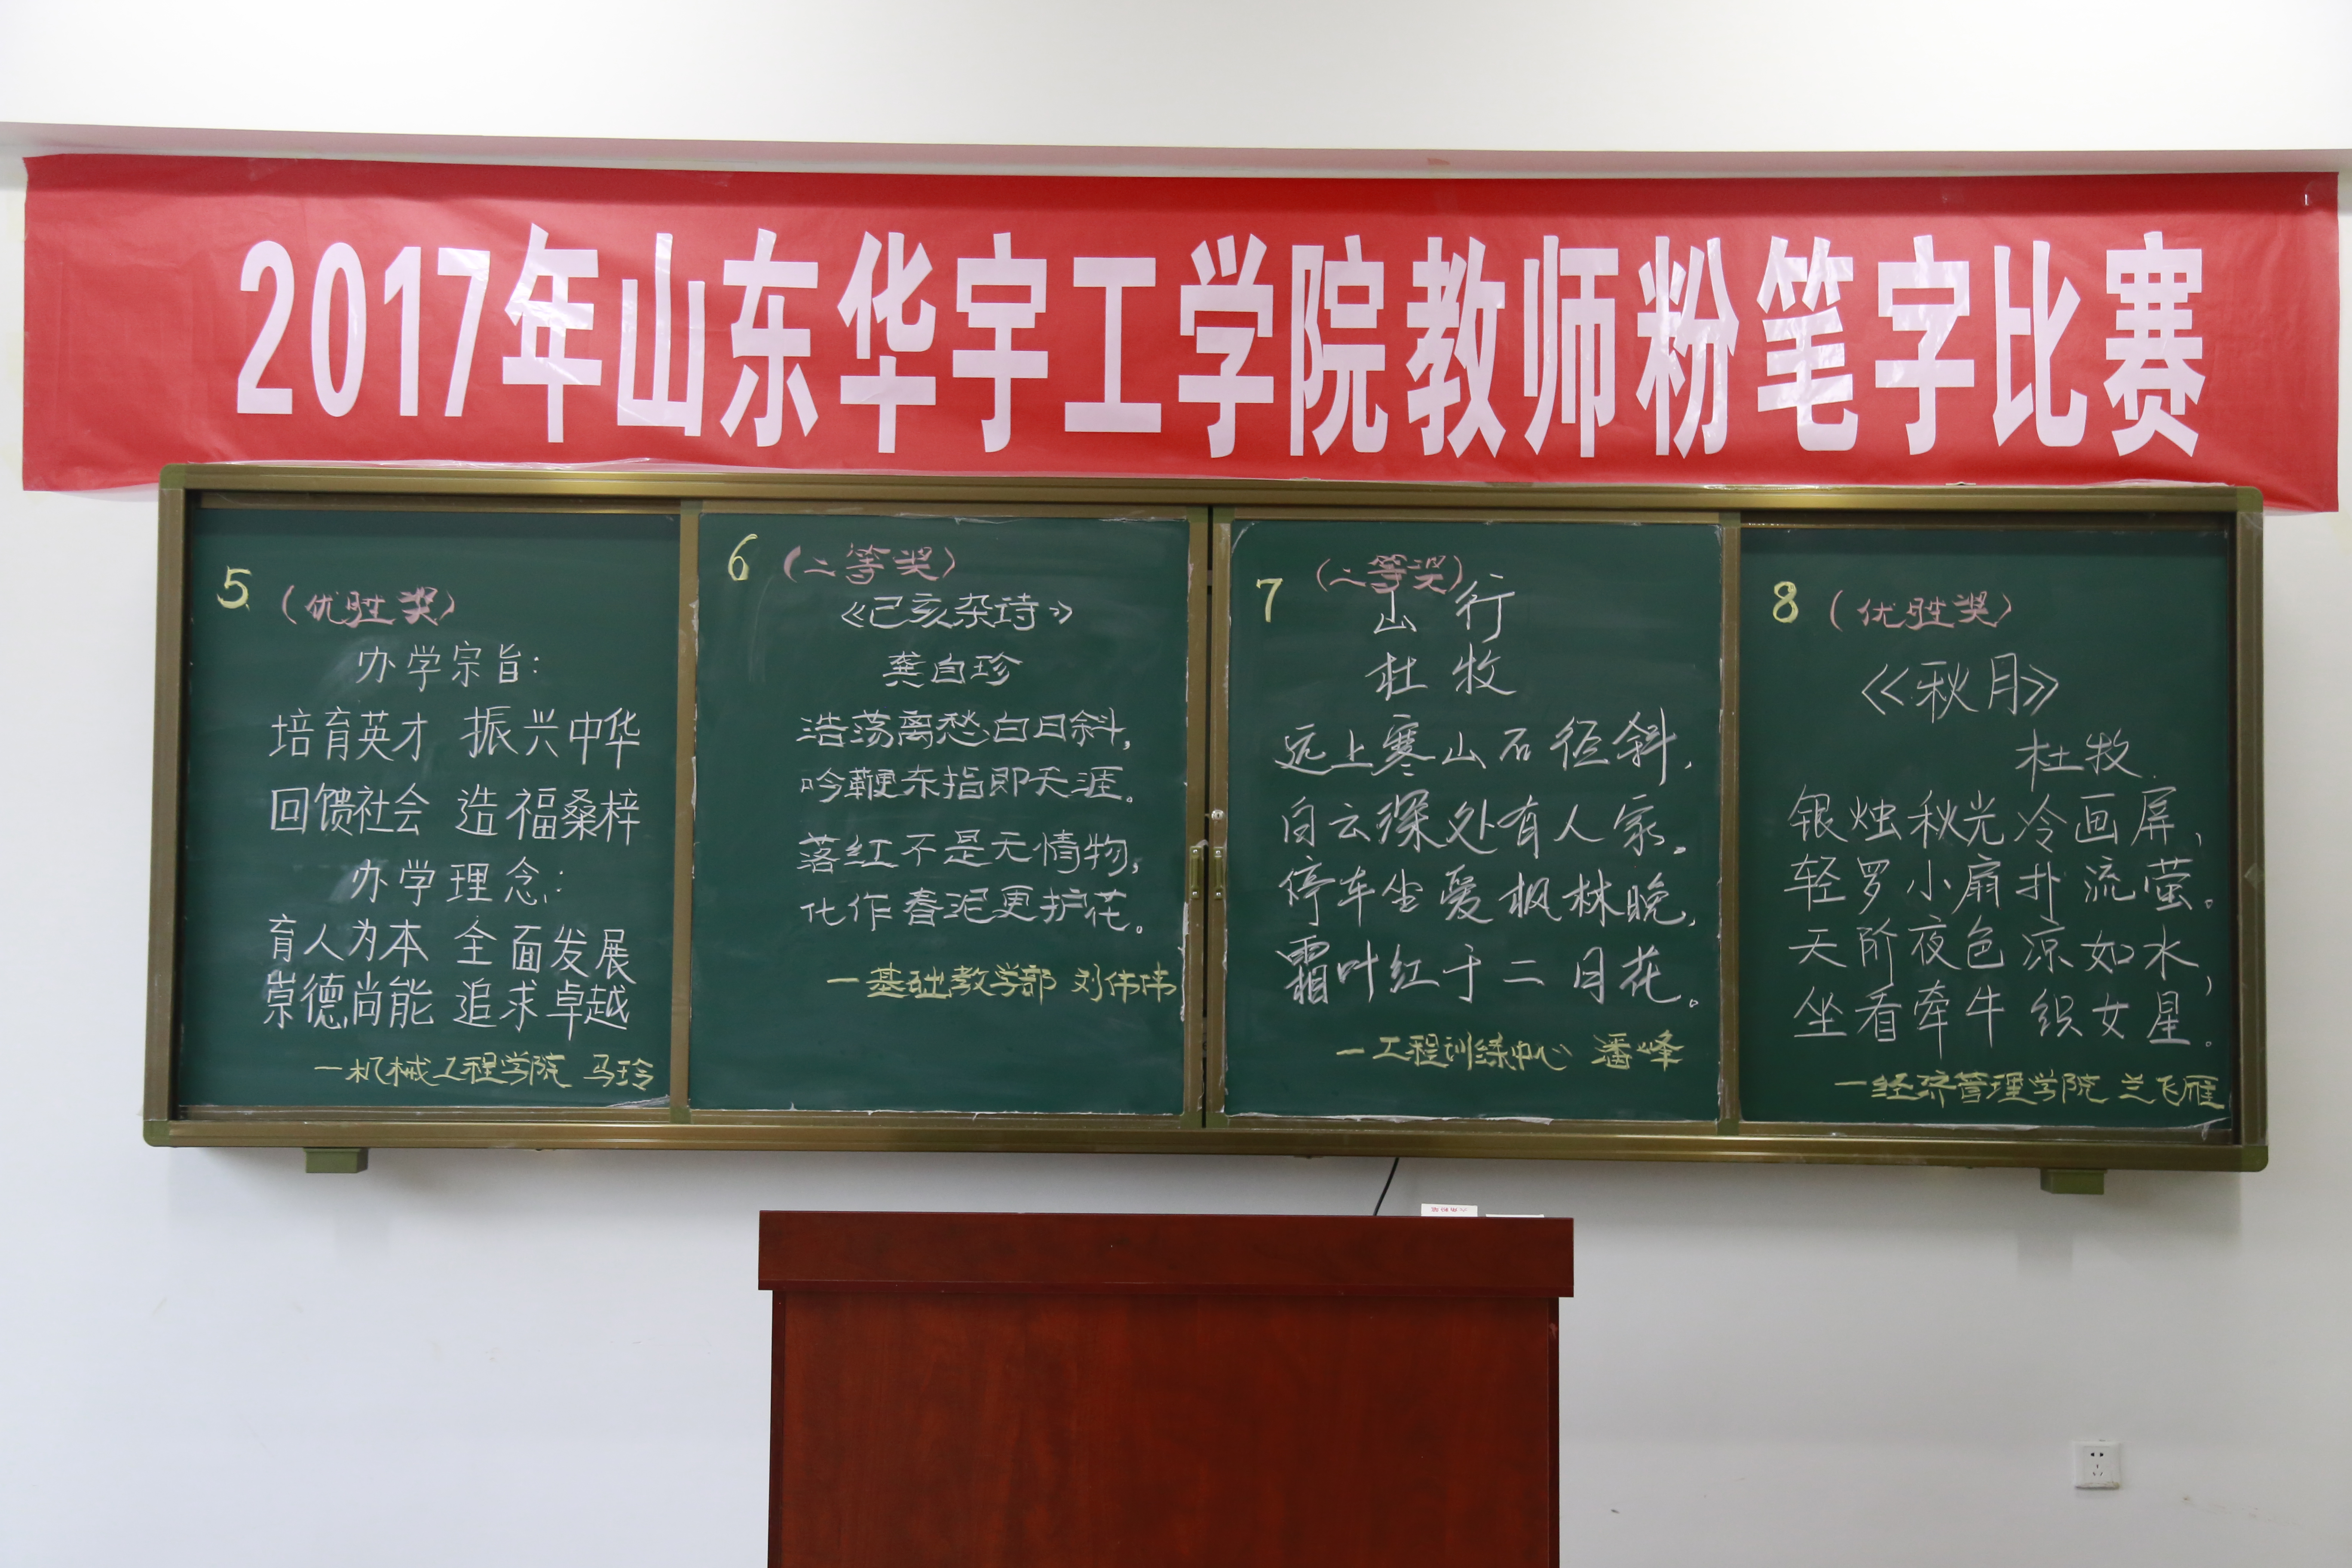 2017年山东华宇工学院教师粉笔字比赛
5
(优胜奖)
办学宗旨:
培育英才 振兴中华
回馈社会 造福桑梓
办学理念:
育人为本 全面发展
崇德尚能 追求卓越
—机械工程学院 马玲
6
(二等奖)
《己亥杂诗》
龚自珍
浩荡离愁白日斜,
吟鞭东指即天涯。
落红不是无情物,
化作春泥更护花。
—基础教学部 刘伟伟
7
(二等奖)
山行
杜牧
远上寒山石径斜,
白云深处有人家。
停车坐爱枫林晚,
霜叶红于二月花。
—工程训练中心 潘峰
8
(优胜奖)
《秋月》
杜牧
银烛秋光冷画屏,
轻罗小扇扑流萤。
天阶夜色凉如水,
坐看牵牛织女星。
—经济管理学院 兰飞雁